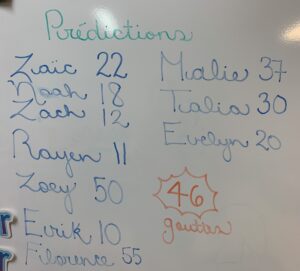 Prédictions
Zaïc 22
Noah 18
Zach 12
Rayen 11
Zoey 50
Eirik 10
Florence 55
Malie 37
Tialia 30
Evelyn 20
46
gouttes